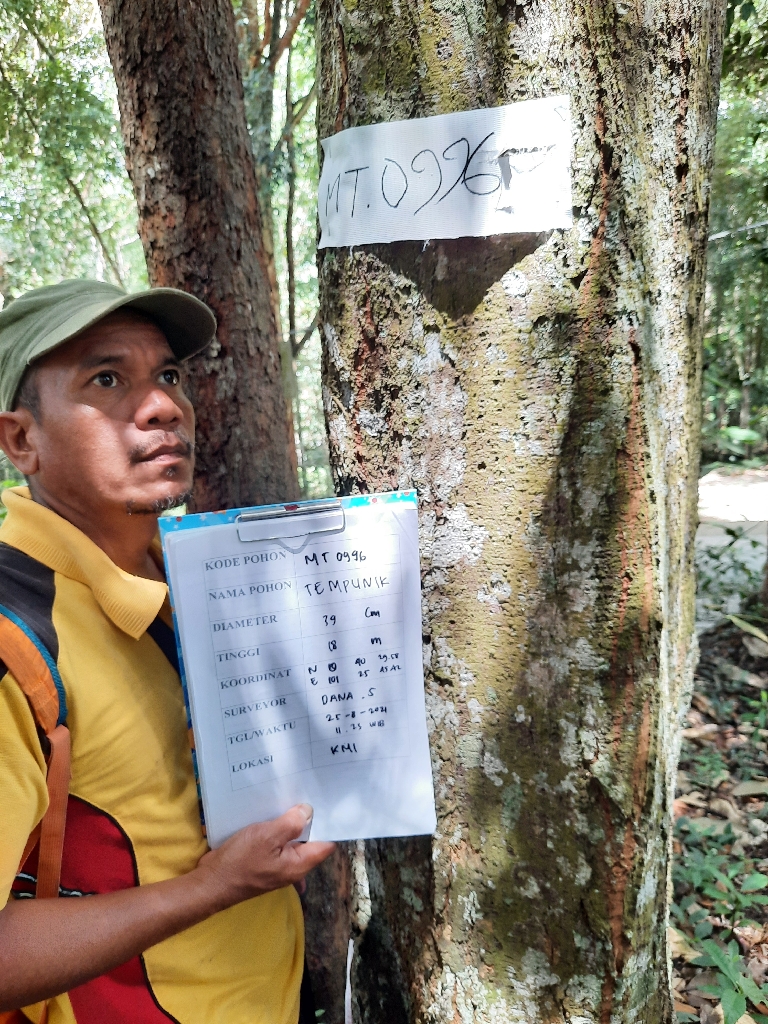 MT.0996
KODE POHON MT 0996
NAMA POHON TEMPUNIK
DIAMETER 39 Cm
TINGGI 18 m
KOORDINAT N 00 40 29.58
E 101 25 45.42
SURVEYOR DANA .S
TGL/WAKTU 25-8-2021
11.23 WIB
LOKASI KMI